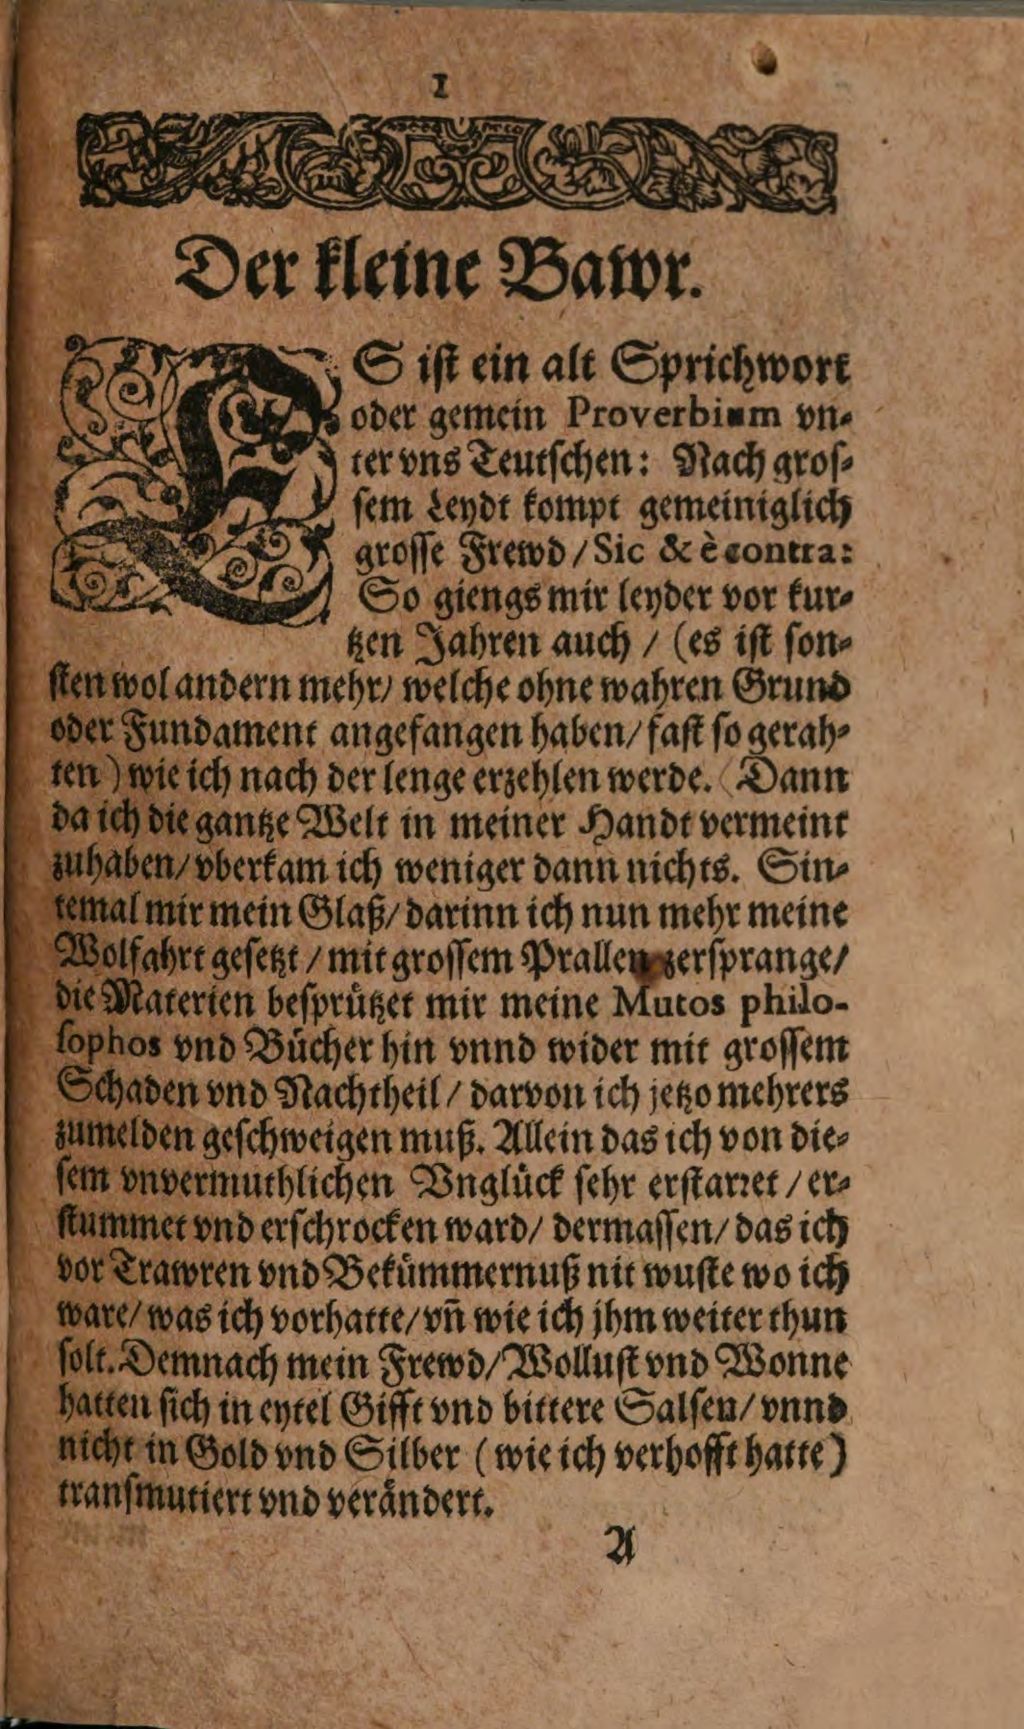 1
Der kleine Bawr.
ES ist ein alt Sprichwort
oder gemein Proverbium vn-
ter vns Teutschen: Nach gros-
sem Leydt kompt gemeiniglich
grosse Frewd / Sic & è contra:
So giengs mir leyder vor kur-
tzen Jahren auch / (es ist son-
sten wol andern mehr / welche ohne wahren Grund
oder Fundament angefangen haben / fast so gerah-
ten) wie ich nach der lenge erzehlen werde. (Dann
da ich die gantze Welt in meiner Handt vermeint
zuhaben / vberkam ich weniger dann nichts. Sin-
temal mir mein Glaß / darinn ich nun mehr meine
Wolfahrt gesetzt / mit grossem Prallen zersprange /
die Materien besprützet mir meine Mutos philo-
sophos vnd Bücher hin vnnd wider mit grossem
Schaden vnd Nachtheil / darvon ich jetzo mehrers
zumelden geschweigen muß. Allein das ich von die-
sem vnvermuthlichen Vnglück sehr erstarret / er-
stummet vnd erschrocken ward / dermassen / das ich
vor Trawren vnd Bekümmernuß nit wuste wo ich
ware / was ich vorhatte / vn̄ wie ich jhm weiter thun
solt. Demnach mein Frewd / Wollust vnd Wonne
hatten sich in eytel Gifft vnd bittere Salsen / vnnd
nicht in Gold vnd Silber (wie ich verhofft hatte)
transmutiert vnd verändert.
A